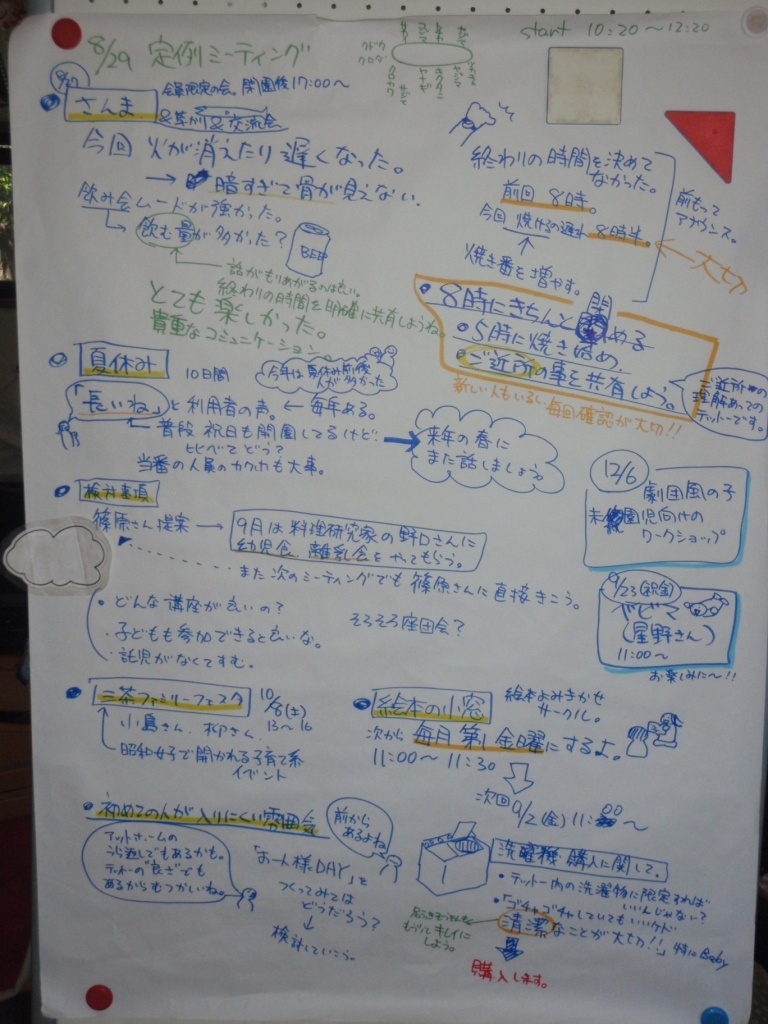 8/29 定例ミーティング
start 10:20〜12:20
さんま
会員限定の会。開園後17:00〜
&交流会
今回 火が消えたり遅くなった。
→ 暗すぎて骨が見えない。
飲み会ムードが強かった。
飲む量が多かった?
話がもりあがるのは良い。
終わりの時間を明確に共有しようね。
とても楽しかった。
貴重なコミュニケーション。
終わりの時間を決めて
なかった。
前回 8時。
今回 焼けるの遅れ 8時半。
焼き番を増やす。
前もって
アナウンス。
大切
・8時にきちんと閉める
・5時に焼きはじめ
・ご近所の事を共有しよう。
新しい人もいるし、毎回確認が大切!!
ご近所の
理解あっての
テットーです。
夏休み
10日間
今年は夏休み前後
人が多かった
「長いね」と利用者の声。← 毎年ある。
普段 祝日も開園してるけど…
比べてどう?
当番の人員のカクホも大事。
来年の春に
また話しましょう
検討事項
篠原さん提案 →
9月は料理研究家の野口さんに
幼児食、離乳食をやってもらう。
また次のミーティングでも篠原さんに直接きこう。
・どんな講座が良いの?
・子どもも参加できると良いな。
・託児がなくてすむ。
そろそろ座田会?
12/6
劇団風の子
未就園児向けの
ワークショップ
9/23(祝金)
(星野さん)
11:00〜
お楽しみに〜!!
三茶ファミリーフェスタ
10/8(土)
13〜16
小島さん、柳さん
昭和女子で開かれる子育て系
イベント
絵本の小窓
絵本よみきかせ
サークル。
次から 毎月第1金曜にするよ。
11:00〜11:30
次回9/2(金)11:00〜
・初めての人が入りにくい雰囲気
アットホームの
うら返しでもあるかも。
テットーの"良さ"でも
あるからむつかしいね。
前から
あるよね
「お一人様DAY」を
つくってみては
どうだろう?
↓
検討していこう。
洗濯機 購入に関して。
・テットー内の洗濯物に限定すれば
いいんじゃない?
・「ゴチャゴチャしていてもいいケド
清潔なことが大切!!」特にBaby
もキレイに
しよう。
購入します。